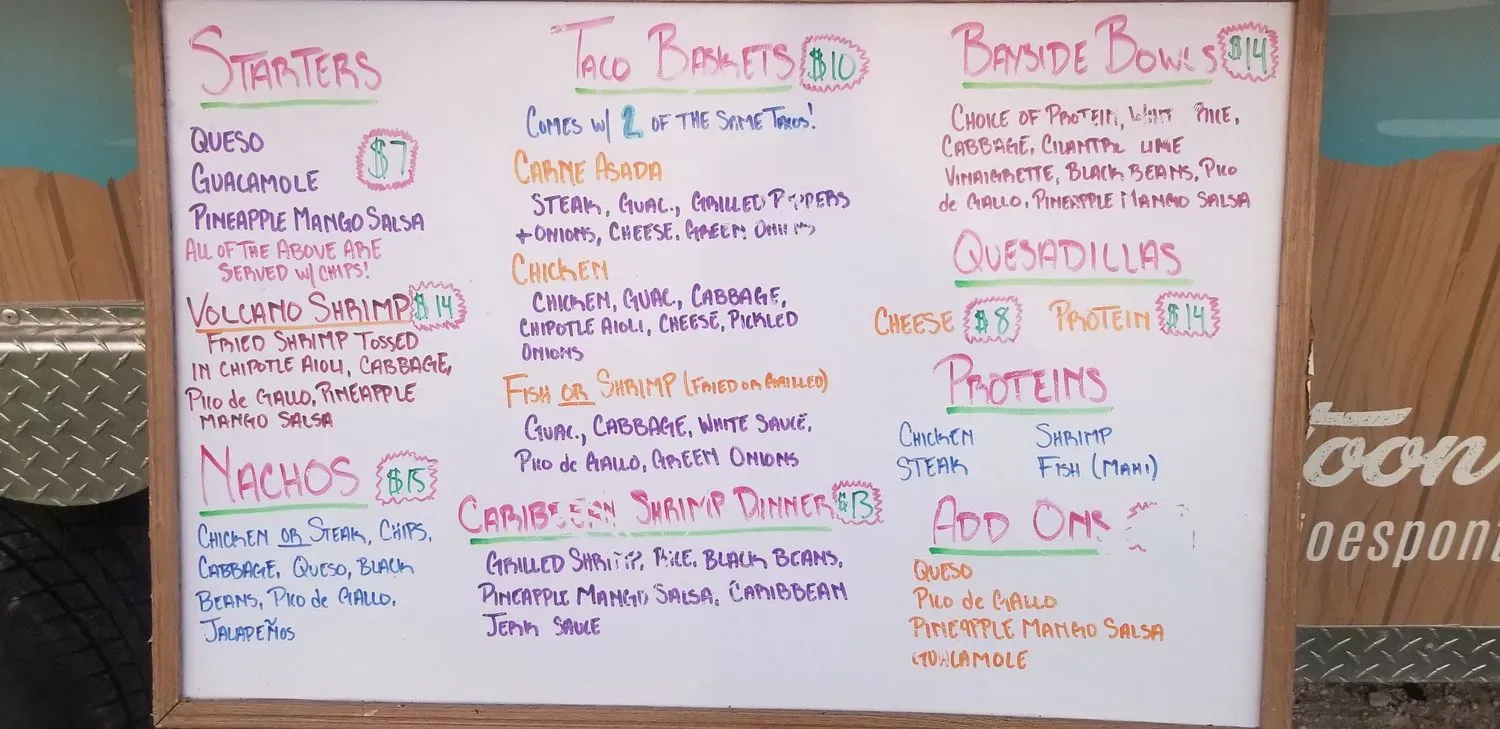 STARTERS
QUESO
$7
GUACAMOLE
PINEAPPLE MANGO SALSA
ALL OF THE ABOVE ARE
SERVED W/ CHIPS!
VOLCANO SHRIMP $14
FRIED SHRIMP TOSSED
IN CHIPOTLE AIOLI, CABBAGE,
PICO de GALLO, PINEAPPLE
MANGO SALSA
NACHOS $15
CHICKEN OR STEAK, CHIPS,
CABBAGE, QUESO, BLACK
BEANS, PICO de GALLO,
JALAPEÑOS
TACO BASKETS $10
COMES W/ 2 OF THE SAME TACOS!
CARNE ASADA
STEAK, GUAC., GRILLED PEPPERS
+ ONIONS, CHEESE, GREEN ONIONS
CHICKEN
CHICKEN, GUAC., CABBAGE,
CHIPOTLE AIOLI, CHEESE, PICKLED
ONIONS
FISH OR SHRIMP (FRIED OR GRILLED)
GUAC., CABBAGE, WHITE SAUCE,
PICO de GALLO, GREEN ONIONS
CARIBEEAN SHRIMP DINNER $13
GRILLED SHRIMP, RICE, BLACK BEANS,
PINEAPPLE MANGO SALSA, CARIBBEAN
JERK SAUCE
BAYSIDE BOWLS $14
CHOICE OF PROTEIN, WHITE RICE,
CABBAGE, CILANTRO LIME
VINAIGRETTE, BLACK BEANS, PICO
de GALLO, PINEAPPLE MANGO SALSA
QUESADILLAS
CHEESE $8 PROTEIN $14
PROTEINS
CHICKEN SHRIMP
STEAK FISH (MAHI)
ADD ONS
QUESO
PICO de GALLO
PINEAPPLE MANGO SALSA
GUACAMOLE
toon
joespont